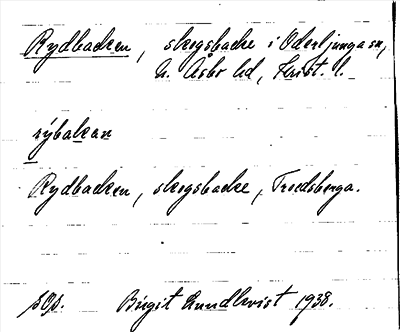 Rydbacken, skogsbacke i Oderljunga sn,
N. Åsbo hd, Krist. l.
rýbakan
Rydbacken, skogsbacke, Troedsberga.
sOp. Birgit Lundkvist 1938.